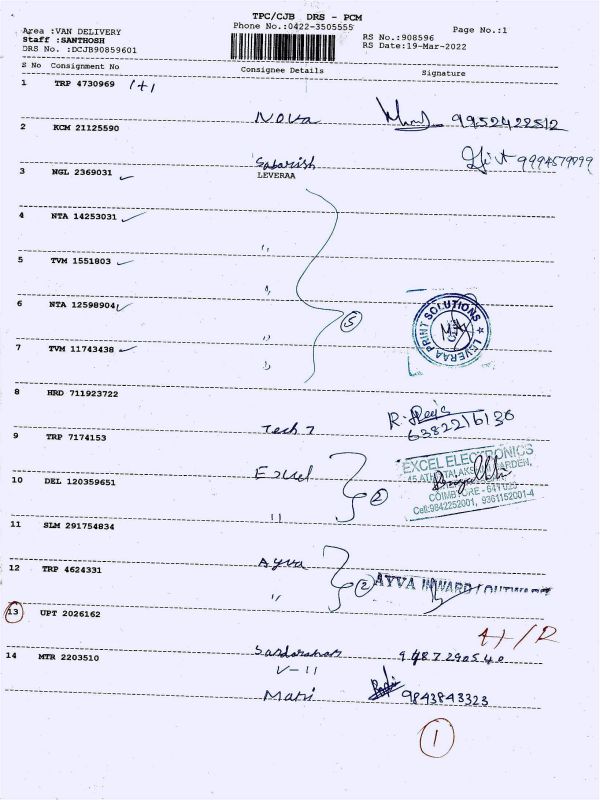 TPC/CJB DRS - PCM
Phone No.:0422-3505555
Page No.:1
Area :VAN DELIVERY
Staff :SANTHOSH
DRS No. :DCJB90859601
RS No.:908596
RS Date:19-Mar-2022
S No Consignment No Consignee Details Signature
1 TRP 4730969 1+1
Nova 9952422512
2 KCM 21125590
Sabarish 9994579099
3 NGL 2369031 LEVERAA
4 NTA 14253031
"
5 TVM 1551803
"
6 NTA 12598904
" 5
LEVERAA PRINT SOLUTIONS
7 TVM 11743438
"
8 HRD 711923722
Tech 7 R. 6382216136
9 TRP 7174153
Excel 2
EXCEL ELECTRONICS
COIMBATORE
Cell:9842252001, 9361152001-4
10 DEL 120359651
"
11 SLM 291754834
Ayva 2 AYVA INWARD/OUTWARD
12 TRP 4624331
"
13 UPT 2026162
9487290540
14 MTR 2203510
V-11
Mani 9843843323
1